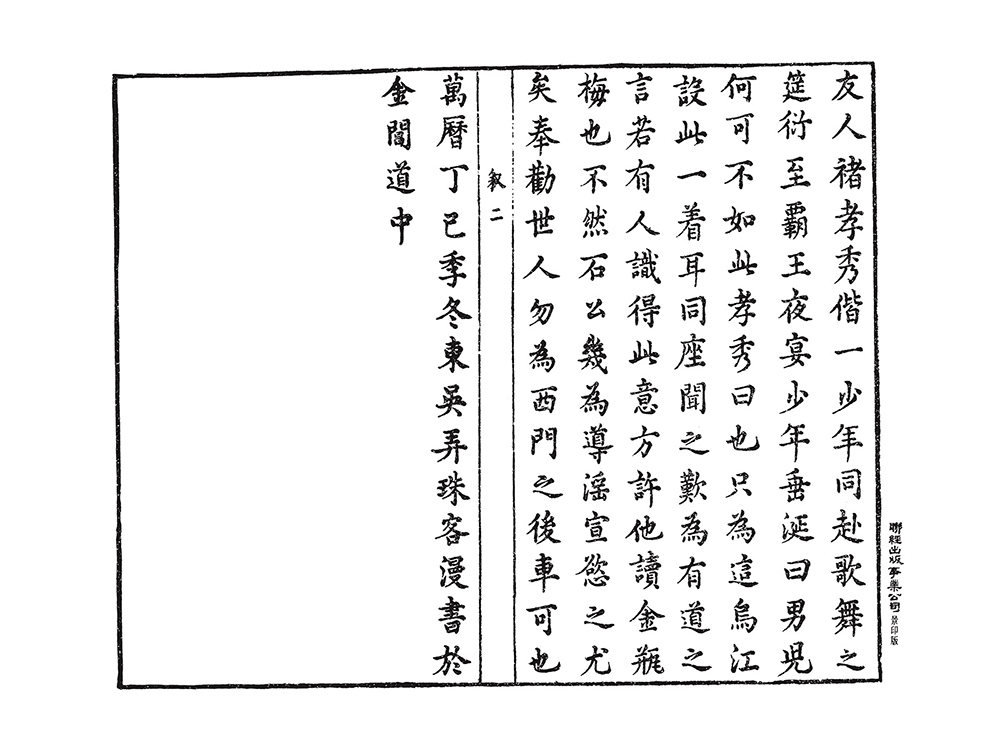 友人褚孝秀偕一少年同赴歌舞之
筵衍至霸王夜宴少年垂涎曰男兒
何可不如此孝秀曰也只為這烏江
設此一着耳同座聞之歎為有道之
言若有人識得此意方許他讀金瓶
梅也不然石公幾為導滛宣慾之尤
矣奉勸世人勿為西門之後車可也
叙二
萬曆丁巳季冬東吳弄珠客漫書於
金閶道中
聯經出版事業公司景印版